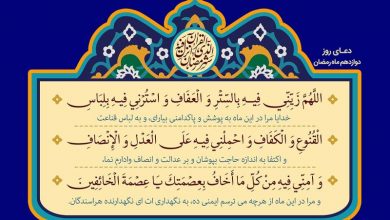 دعای روز
دوازدهم ماه رمضان
اللَّهُمَّ زَیِّنِّی فِیهِ بِالسِّتْرِ وَ الْعَفَافِ وَ اسْتُرْنِی فِیهِ بِلِبَاسِ
خدایا مرا در این ماه به پوشش و پاکدامنی بیارای، و به لباس قناعت
الْقُنُوعِ وَ الْکَفَافِ وَ احْمِلْنِی فِیهِ عَلَی الْعَدْلِ وَ الْإِنْصَافِ
و اکتفا به اندازه حاجت بپوشان و بر عدالت و انصاف وادارم نما،
وَ آمِنِّی فِیهِ مِنْ کُلِّ مَا أَخَافُ بِعِصْمَتِکَ یَا عِصْمَةَ الْخَائِفِینَ
و مرا در این ماه از هرچه می ترسم ایمنی ده، به نگهداری ات ای نگهدارنده هراسندگان.